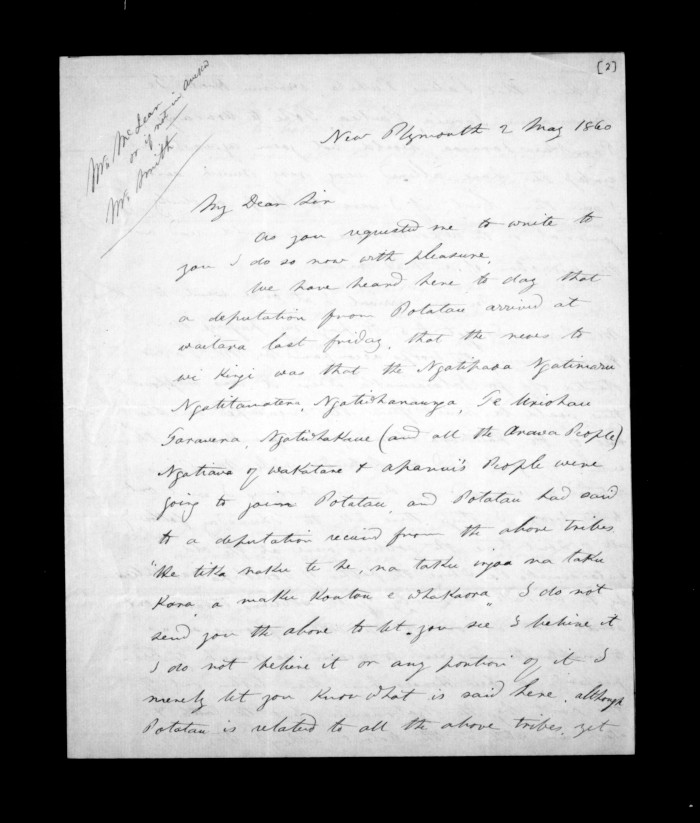 [2]
Mr. McLean
or if not in
Mr. Smith
New Plymouth 2 May 1860
My Dear Sir
As you requested me to write to
you I do so now with pleasure.
We have heard here to day that
a deputation from Potatau arrived at
waitara last friday, that the news to
wi Kingi was that the Ngatipaoa Ngatimaru
Ngatitamatera, Ngatiwhanaunga, Te Uriohau
Tarawera, Ngatiwhakaue (and all the Arawa People)
Ngatiawa of wakatane & apanui's People were
going to join Potatau, and Potatau had said
to a deputation received from the above tribes
"He tika naku te he, na taku ingoa na taku
Kora a maku Koutou e whakaora" I do not
send you the above to let you see I believe it
I do not believe it or any portion of it I
merely let you know what is said here. although
Potatau is related to all the above tribes, yet